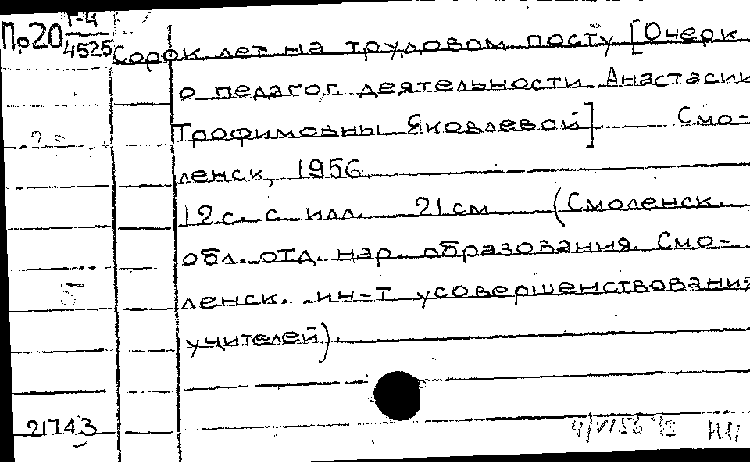 Пр20 Г-4
4525
Сорок лет на трудовом посту [Очерк
о педагог. деятельности Анастасии
Трофимовны Яковлевой] Смо-
ленск, 1956
12с. с илл. 21см (Смоленск.
обл. отд. нар. образования. Смо-
ленск. ин-т усовершенствования
учителей).
21743